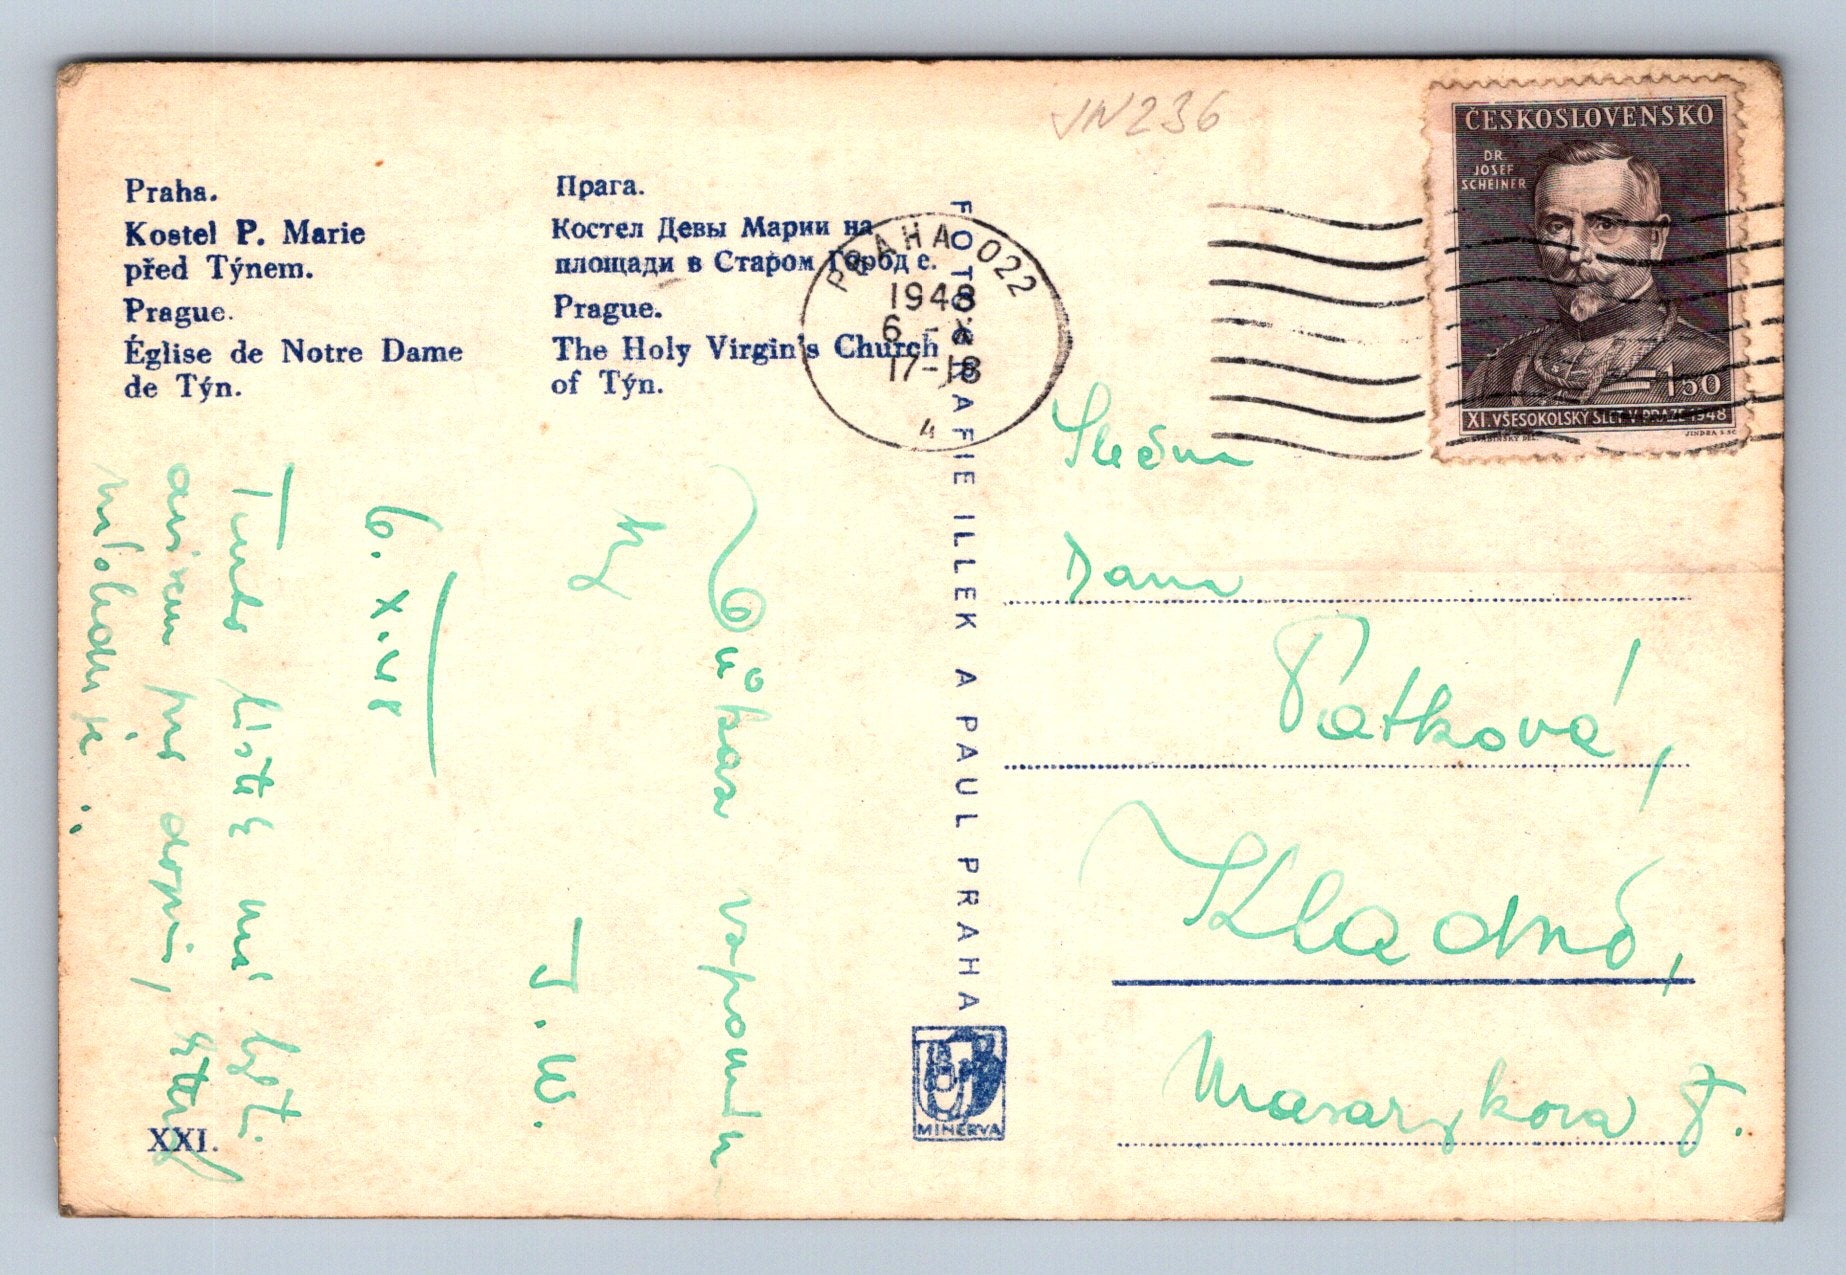 JN236
Praha.
Kostel P. Marie
před Týnem.
Prague.
Église de Notre Dame
de Týn.
Прага.
Костел Девы Марии на
площади в Старом Городе.
Prague.
The Holy Virgin's Church
of Týn.
PRAHA 022
1948
6
17-18
4
ČESKOSLOVENSKO
DR.
JOSEF
SCHEINER
1.50
XI. VŠESOKOLSKÝ SLET V PRAZE 1948
JINDRA SC.
FOTOGRAFIE ILLEK A PAUL PRAHA
MINERVA
XXI.
Důkaz
T.W.
6.X.48
Tento lístek má být
Slečna
Dana
Patková,
Kladno,
Masarykova 8.